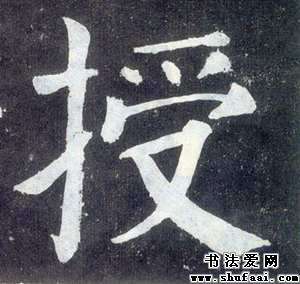 授
书法爱网
www.shufaai.com